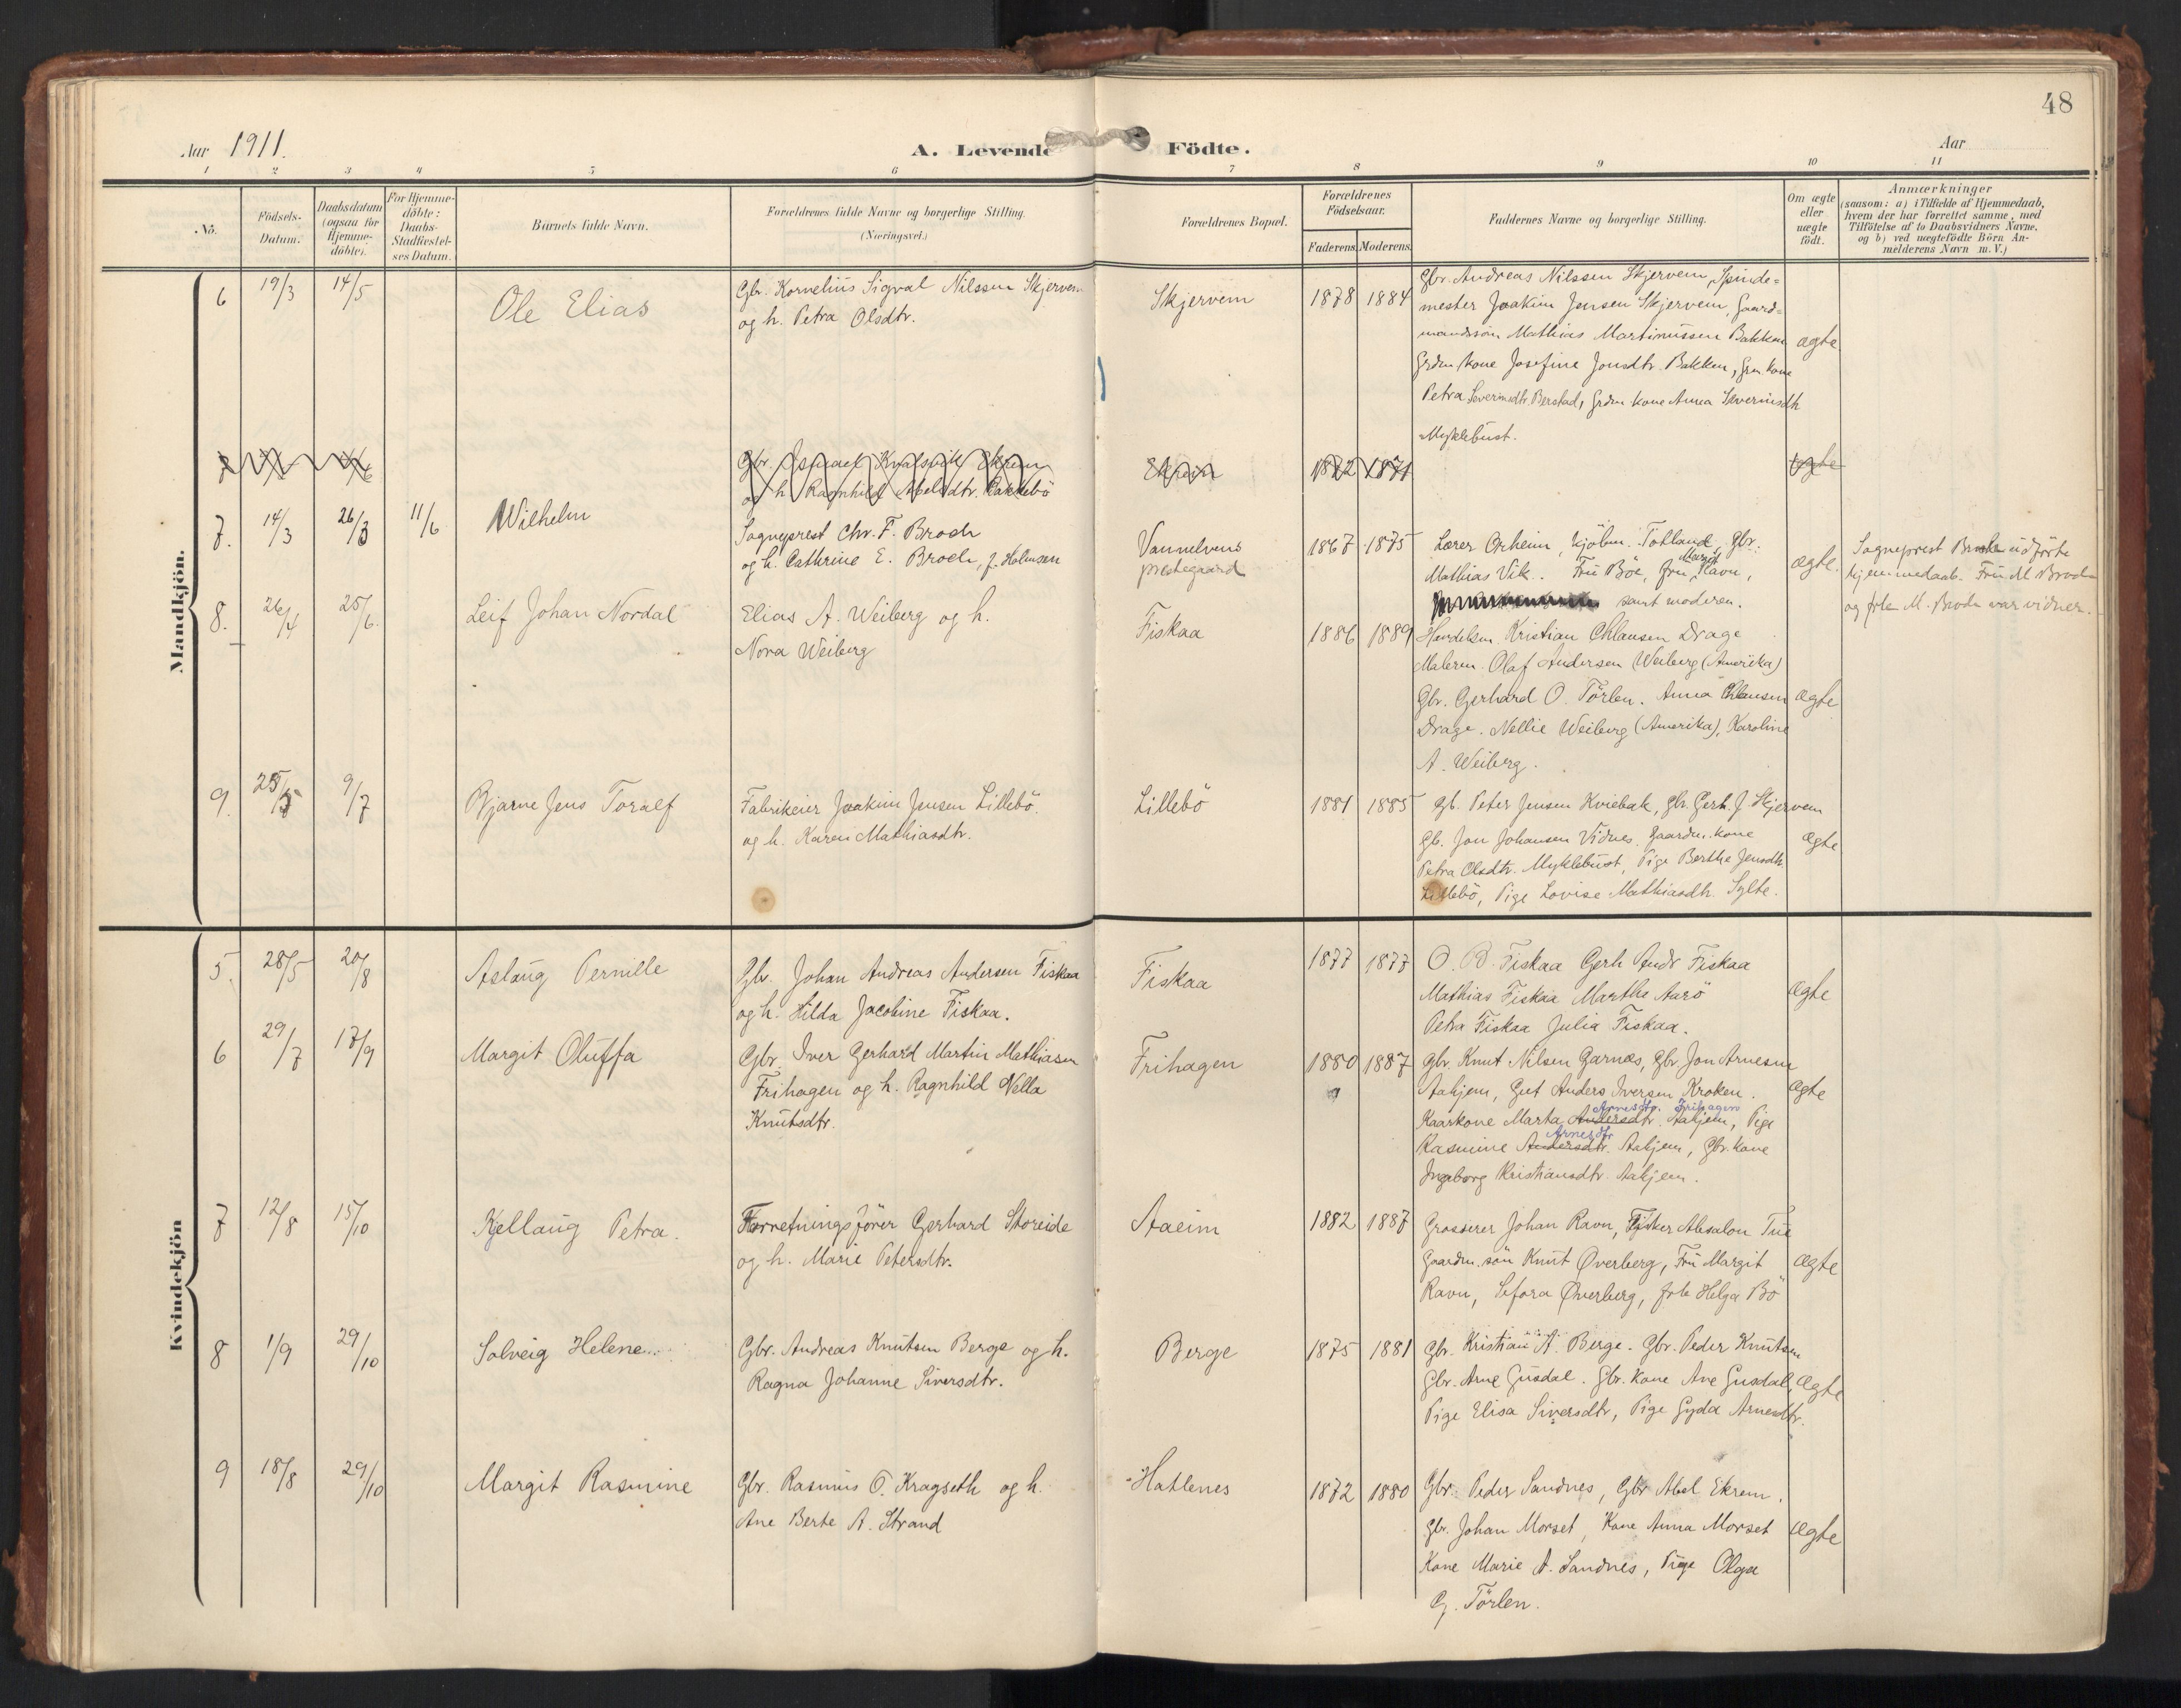 48
Aar 1911.
A. Levende Födte.
Aar
1 2 3 4 5 6 7 8 9 10 11
No.
Födsels-Datum.
Daabsdatum (ogsaa for Hjemme-döbte).
For Hjemme-döbte: Daabs-Stadfæstel-ses Datum.
Barnets fulde Navn.
Forældrenes fulde Navne og borgerlige Stilling.
(Næringsvei.)
Forældrenes Bopæl.
Forældrenes Födselsaar.
Faderens. Moderens.
Faddernes Navne og borgerlige Stilling.
Om ægte eller uægte födt.
Anmærkninger
(saasom: a) i Tilfælde af Hjemmedaab,
hvem der har forrettet samme, med
Tilföielse af to Daabsvidners Navne,
og b) ved uægtefödte Börn An-
melderens Navn m. V.)
Mandkjön.
6 19/3 14/5 Ole Elias
Gbr. Kornelius Sigval Nilssen Skjervem
og h. Petra Olsdtr.
Skjervem 1878 1884
Gbr. Andreas Nilssen Skjervem, Spinde=
mester Joakim Jensen Skjervem, Gaard=
mandssön Mathias Martinussen Bakken
Grdm. kone Josefine Jonsdtr. Bakken, Grm kone
Petra Severinsdtr. Berstad, Grdm. kone Anna Severinsdtr
Myklebust.
ægte
7
Gbr. Ismael Kvalsvik Ekrem
og h. Ragnhild Abelsdtr. Bakkebö
Ekrem 1872 1871
ægte
7. 14/3 26/3 11/6 Wilhelm
Sogneprest Chr. F. Broch
og h. Cathrine E. Broch, f. Holmsen
Vannelvens
prestegaard
1867 1875
Lærer Orheim, kjöbm. Totland, Gbr.
Mathias Vik. Fru Böe, Fru Margit Ravn,
samt moderen.
ægte.
Sogneprest Broch udförte
hjemmedaab. Fru M Broch
og frk M. Broch var vidner.
8. 26/4 25/6 Leif Johan Nordal
Elias A. Weiberg og h.
Nora Weiberg
Fiskaa 1886 1889
Handelsm. Kristian Chlausen Drage
Malerm. Olaf Andersen Weiberg (Amerika)
Gbr. Gerhard O. Törlen. Anna Chlausen
Drage. Nellie Weiberg (Amerika), Karoline
A. Weiberg.
ægte
9. 25/5 9/7 Bjarne Jens Toralf
Fabrikeier Joakim Jensen Lillebö.
og h. Karen Mathiasdtr.
Lillebö 1881 1885
Gb. Peter Jensen Kviebak, Gbr. Gerh. J. Skjervem
Gb. Jon Johansen Vidnes. Gaardm. kone
Petra Olsdtr. Myklebust, Pige Berthe Jensdtr
Lillebö, Pige Lovise Mathiasdtr. Sylte.
ægte
Kvindekjön
5. 28/5 20/8 Aslaug Pernille
Gbr. Johan Andreas Andersen Fiskaa
og h. Hilda Jacobine Fiskaa.
Fiskaa 1877 1877
O. B. Fiskaa Gerh Andr Fiskaa
Mathias Fiskaa Marthe Aarö
Petra Fiskaa Julia Fiskaa.
ægte
6 29/7 17/9 Margit Oluffa
Gbr. Iver Gerhard Martin Mathiasen
Frihagen og h. Ragnhild Nella
Knutsdtr.
Frihagen 1880 1887
Gbr. Knut Nilsen Garnæs, Gbr. Jon Arnesen
Aahjem, Gut Anders Iversen Kroken.
Arnesdtr. Frihagen
Kaarkone Marta Andersdtr. Aahjem, Pige
Arnesdtr
Rasmine Andersdtr. Aahjem, Gbr. kone
Ingeborg Kristiansdtr. Aahjem.
ægte
7 12/8 15/10 Kjellaug Petra.
Forretningsförer Gerhard Storeide
og h. Marie Petersdtr.
Aaeim 1882 1887
Grosserer Johan Ravn, Fisker Absalon Tue
Gaardm. sön Knut Øverberg, Fru Margit
Ravn, Sefora Øverberg, frk Helga Bö
ægte
8 1/9 29/10 Solveig Helene
Gbr. Andreas Knutsen Berge og h.
Ragna Johanne Siversdtr.
Berge 1875 1881
Gbr. Kristian A. Berge. Gbr. Peder Knutsen
Gbr. Arne Gusdal. Gbr. Kone Ane Gusdal,
Pige Elisa Siversdtr, Pige Gyda Arnesdtr.
ægte
9 18/8 29/10 Margit Rasmine
Gbr. Rasmus O. Kragseth og h.
Ane Berte A. Strand
Hatlenes 1872 1880
Gbr. Peder Sandnes, Gbr Abel Ekrem.
Gbr. Johan Morset, Kone Anna Morset
Kone Marie A. Sandnes, Pige Olga
G. Törlen.
ægte